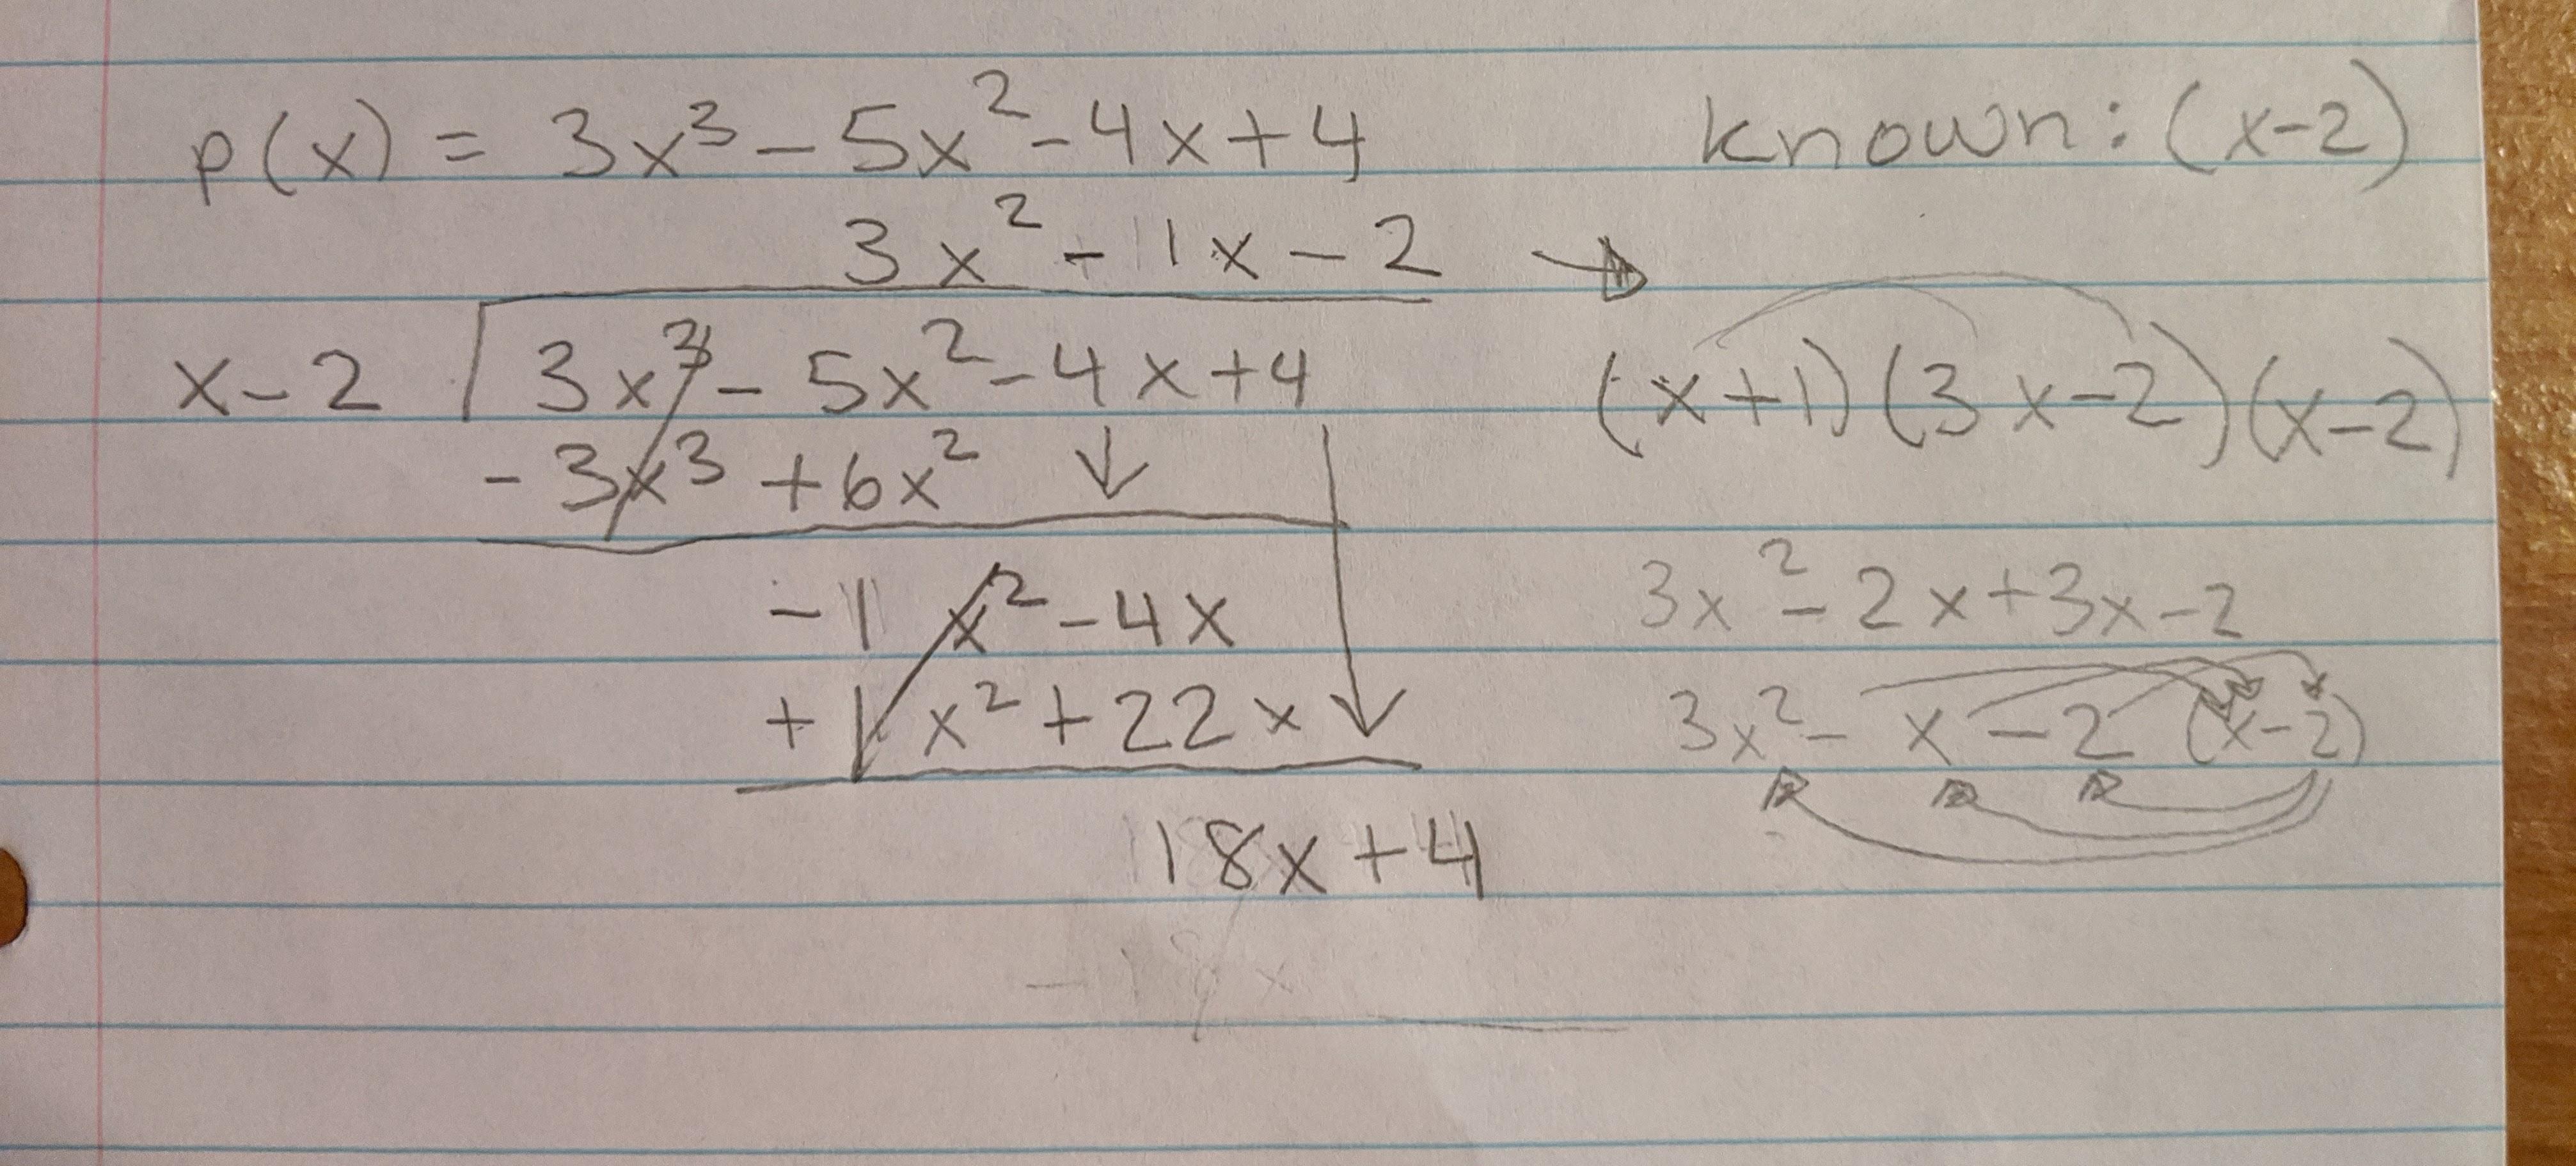 p(x) = 3x³ - 5x² - 4x + 4
known: (x-2)
3x² - 1x - 2 →
x - 2 3x³ - 5x² - 4x + 4
- 3x³ + 6x² ↓
-1 x² - 4x
+1 x² + 22x ↓
18x + 4
-18x
(x+1)(3x-2)(x-2)
3x² - 2x + 3x - 2
3x² - x - 2 (x-2)